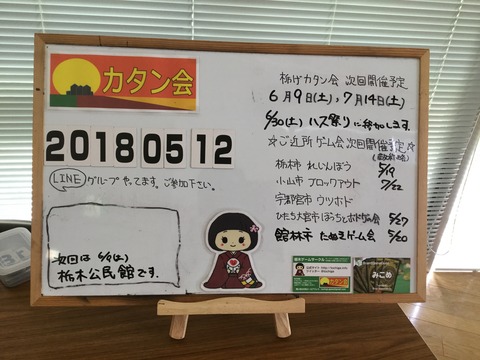 カタン会
20180512
LINE グループやってます。ご参加下さい。
次回は 6/9(土)
栃木公民館です。
栃げカタン会 次回開催予定
6月9日(土), 7月14日(土)
6/30(土) ハス祭りに参加します。
☆ご近所ゲーム会 次回開催予定☆
栃木市 れいんぼう 5/19
小山市 ブロックアウト 7/22
宇都宮市 ウツボド
ひたち大宮市 ぼっちとボドゲの会 5/27
館林市 たぬきゲーム会 5/20
栃木ゲームサークル
カタン
みこめ